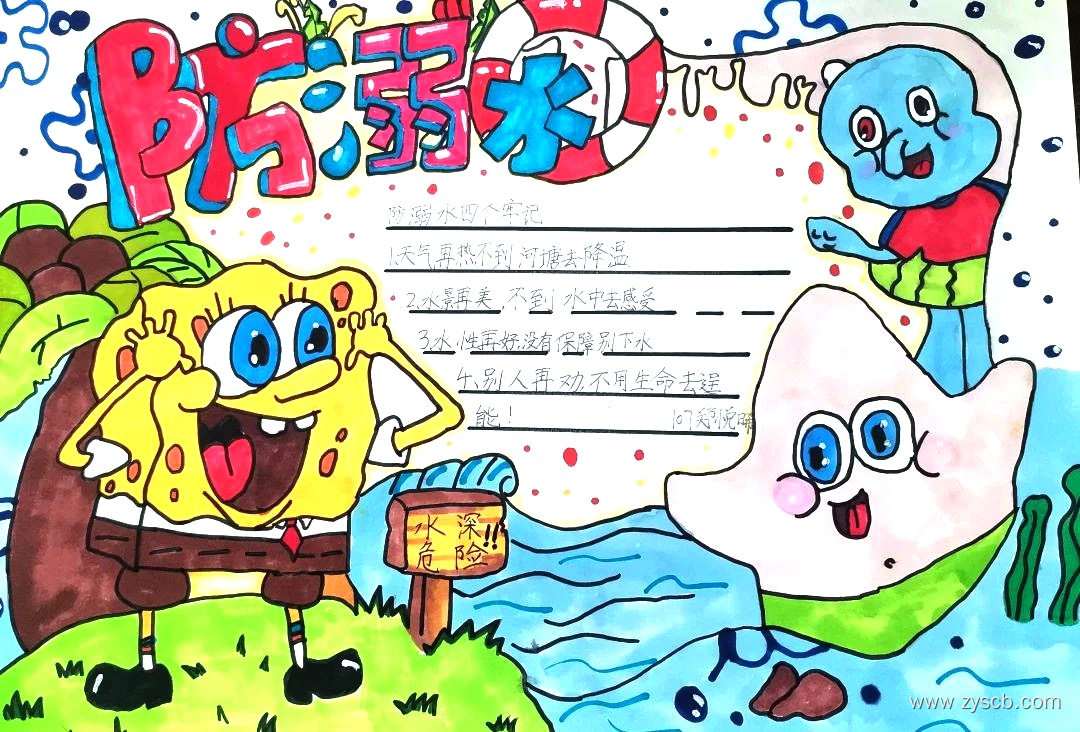 防溺水
防溺水四个牢记
1.天气再热不到河塘去降温
2.水景再美,不到水中去感受
3.水性再好,没有保障别下水
4.别人再劝,不用生命去逞
能!
107
水深
危险!!
www.zyscb.com